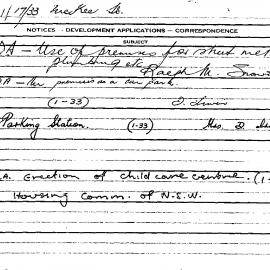 1/17/33 McKee St.
NOTICES - DEVELOPMENT APPLICATIONS - CORRESPONDENCE
SUBJECT
DA - Use of premises for sheet met
plumbing etc. Ralph M. Snow
DA - Use premises as a car park.
(1-33)
Parking Station. (1-33) Mrs. D.
A. Erection of child care centre. (1-
Housing Comm. of N.S.W.